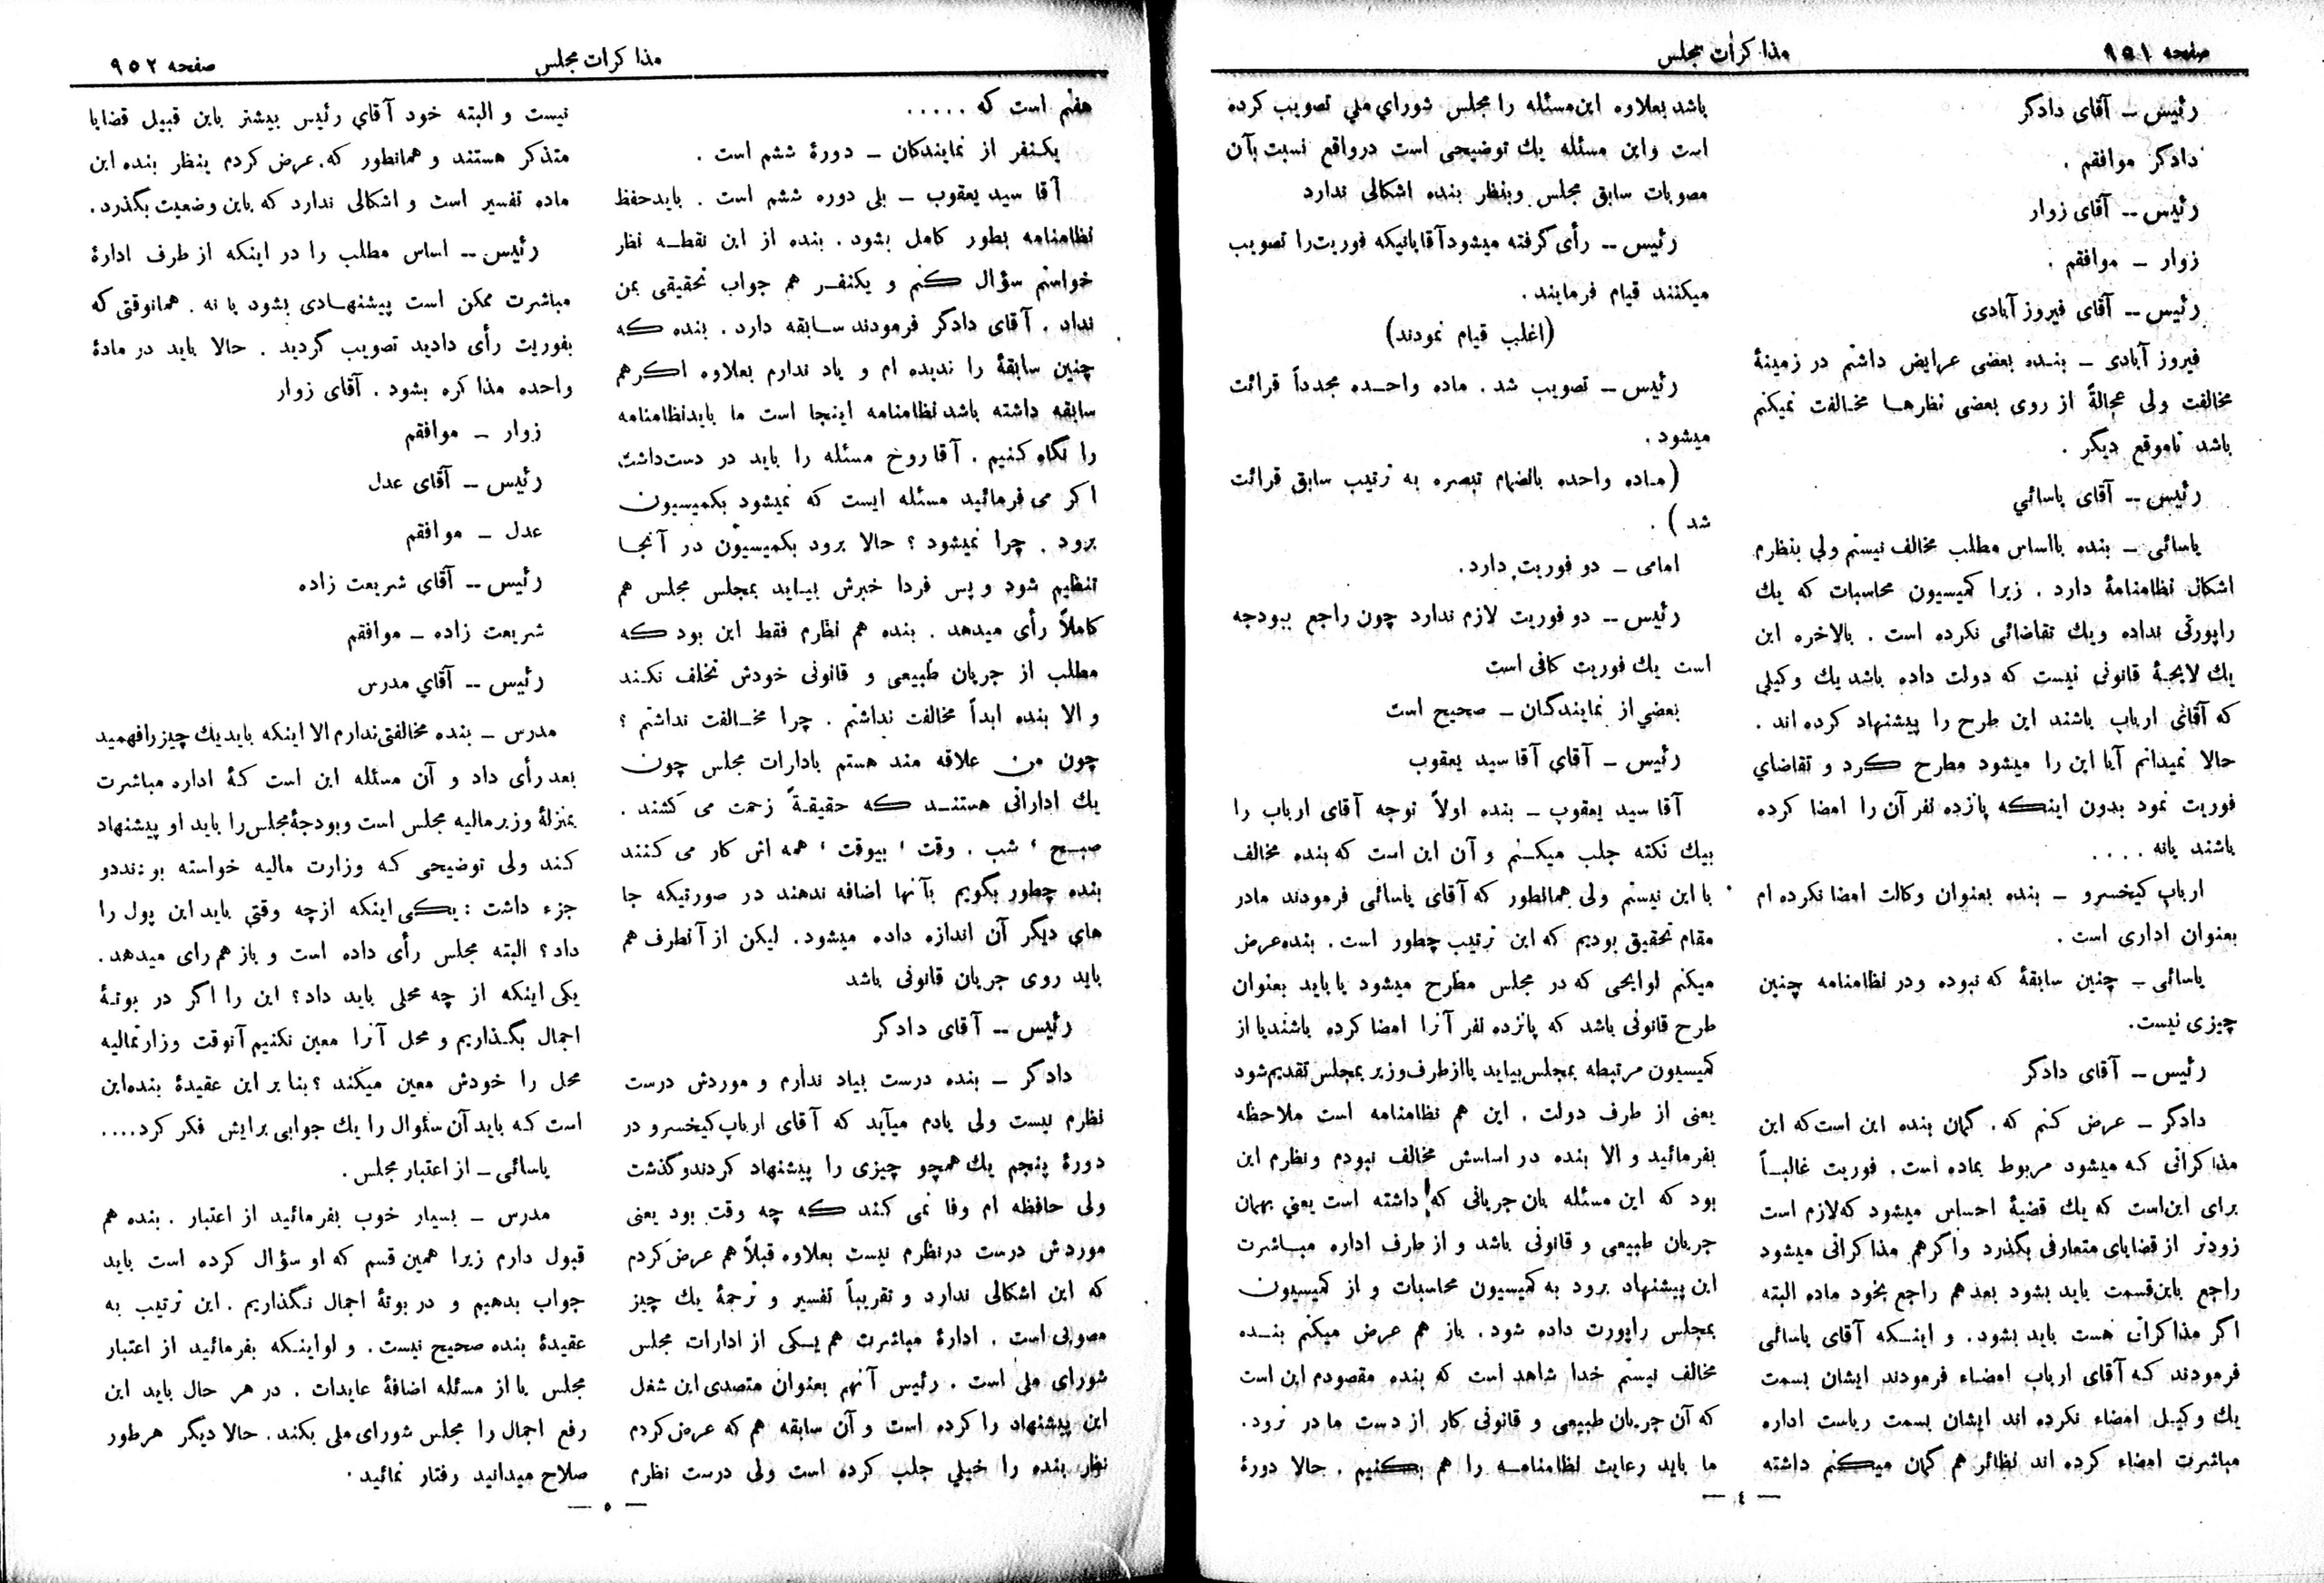 صفحه ۹۵۱
مذاکرات مجلس
رئیس ــ آقای دادگر
دادگر موافقم .
رئیس -- آقای زوار
زوار ــ موافقم .
رئیس -- آقای فیروزآبادی
فیروز آبادی ــ بنده بعضی عرایض داشتم در زمینهٔ
مخالفت ولی عجالةً از روی بعضی نظرها مخالفت نمیکنم
باشد تاموقع دیگر .
رئیس -- آقای یاسائي
یاسائی ــ بنده بااساس مطلب مخالف نیستم ولي بنظرم
اشکال نظامنامهٔ دارد . زیرا کمیسیون محاسبات که یك
راپورتی نداده ویك تقاضائی نکرده است . بالاخره این
یك لایحهٔ قانونی نیست که دولت داده باشد یك وکیلي
که آقای ارباب باشند این طرح را پیشنهاد کرده اند .
حالا نمیدانم آیا این را میشود مطرح کرد و تقاضاي
فوریت نمود بدون اینکه پازده نفر آن را امضا کرده
باشند یانه . . . .
ارباب کیخسرو ــ بنده بعنوان وکالت امضا نکرده ام
بعنوان اداری است .
یاسائی ــ چنین سابقهٔ که نبوده ودر نظامنامه چنین
چیزی نیست.
رئیس ــ آقای دادگر
دادگر ــ عرض کنم که . گمان بنده این است که این
مذاکراتی که میشود مربوط بماده است. فوریت غالبـاً
برای این‌است که یك قضیهٔ احساس میشود که‌لازم است
زودتر از قضایای متعارفی بگذرد واگرهم مذاکراتی میشود
راجع باین‌قسمت باید بشود بعدهم راجع بخود ماده البته
اگر مذاکراتی هست باید بشود. و اینکه آقای یاسائی
فرمودند که آقای ارباب امضاء فرمودند ایشان بسمت
یك وکیل امضاء نکرده اند ایشان بسمت ریاست اداره
مباشرت امضاء کرده اند نظائر هم گمان میکنم داشته
باشد بعلاوه این‌مسئله را مجلس شورای ملي تصویب کرده
است واین مسئله یك توضیحی است درواقع نسبت بآن
مصوبات سابق مجلس وبنظر بنده اشکالی ندارد
رئیس -- رأی گرفته میشود آقایانیکه فوریت‌را تصویب
میکنند قیام فرمایند .
(اغلب قیام نمودند)
رئیس ــ تصویب شد . ماده واحده مجدداً قرائت
میشود .
(ماده واحده بانضمام تبصره به ترتیب سابق قرائت
شد ) .
امامی ــ دو فوریت دارد.
رئیس -- دو فوریت لازم ندارد چون راجع ببودجه
است یك فوریت کافی است
بعضي از نمایندگان ــ صحیح است
رئیس ــ آقای آقا سید یعقوب
آقا سید یعقوب ــ بنده اولاً توجه آقای ارباب را
بیك نکته جلب میکنم و آن این است که بنده مخالف
با این نیستم ولی همانطور که آقای یاسائی فرمودند مادر
مقام تحقیق بودیم که این ترتیب چطور است . بنده عرض
میکنم لوایحی که در مجلس مطرح میشود یا باید بعنوان
طرح قانونی باشد که پانزده نفر آنرا امضا کرده باشندیا از
کمیسیون مرتبطه بمجلس بیاید یااز طرف‌وزیر بمجلس تقدیم شود
یعنی از طرف دولت . این هم نظامنامه است ملاحظه
بفرمائید و الا بنده در اساسش مخالف نبودم ونظرم این
بود که این مسئله بان جریانی که داشته است یعني بهمان
جریان طبیعی و قانونی باشد و از طرف اداره مباشرت
این پیشنهاد برود به کمیسیون محاسبات و از کمیسیون
بمجلس راپورت داده شود. باز هم عرض میکنم بنده
مخالف نیستم خدا شاهد است که بنده مقصودم این است
که آن جریان طبیعی و قانونی کار از دست ما در نرود.
ما باید رعایت نظامنامه را هم بکنیم . حالا دورهٔ
— ٤ —
مذاکرات مجلس
صفحه ۹۵۲
هفتم است که . . . . .
یکنفر از نمایندگان ــ دورهٔ ششم است .
آقا سید یعقوب ــ بلی دوره ششم است . باید حفظ
نظامنامه بطور کامل بشود . بنده از این نقطه نظر
خواستم سؤال کنم و یکنفر هم جواب تحقیقی بمن
نداد . آقای دادگر فرمودند سابقه دارد . بنده که
چنین سابقهٔ را ندیده ام و یاد ندارم بعلاوه اگرهم
سابقه داشته باشد نظامنامه اینجا است ما بایدنظامنامه
را نگاه کنیم . آقا روح مسئله را باید در دست‌داشت
اکر می فرمائید مسئله ایست که نمیشود بکمیسیون
برود . چرا نمیشود ؟ حالا برود بکمیسیون در آنجا
تنظیم شود و پس فردا خبرش بیاید بمجلس مجلس هم
کاملاً رأی میدهد . بنده هم نظرم فقط این بود که
مطلب از جریان طبیعی و قانونی خودش تخلف نکند
و الا بنده ابداً مخالفت نداشتم . چرا مخالفت نداشتم ؟
چون من علاقه مند هستم بادارات مجلس چون
یك اداراتی هستند که حقیقةً زحمت می کشند .
صبح ، شب . وقت ، بیوقت ، همه اش کار می کنند
بنده چطور بگویم بآنها اضافه ندهند در صورتیکه جا
های دیگر آن اندازه داده میشود. لیکن از آنطرف هم
باید روی جریان قانونی باشد
رئیس -- آقای دادگر
دادگر ــ بنده درست بیاد ندارم و موردش درست
نظرم نیست ولی یادم میآید که آقای ارباب‌کیخسرو در
دورهٔ پنجم یك همچو چیزی را پیشنهاد کردندوگذشت
ولی حافظه ام وفا نمی کند که چه وقت بود یعنی
موردش درست درنظرم نیست بعلاوه قبلاً هم عرض کردم
که این اشکالی ندارد و تقریباً تفسیر و ترجمهٔ یك چیز
مصوبی است . ادارهٔ مباشرت هم یکی از ادارات مجلس
شورای ملی است . رئیس آنهم بعنوان متصدی این شغل
این پیشنهاد را کرده است و آن سابقه هم که عرض کردم
نظر بنده را خیلي جلب کرده است ولی درست نظرم
نیست و البته خود آقاي رئیس بیشتر باین قبیل قضایا
متذکر هستند و همانطور که. عرض کردم بنظر بنده این
ماده تفسیر است و اشکالی ندارد که باین وضعیت بگذرد.
رئیس -- اساس مطلب را در اینکه از طرف ادارهٔ
مباشرت ممکن است پیشنهادی بشود یا نه . همانوقتی که
بفوریت رأی دادید تصویب گردید . حالا باید در مادهٔ
واحده مذاکره بشود . آقای زوار
زوار ــ موافقم
رئیس ــ آقای عدل
عدل ــ موافقم
رئیس -- آقای شریعت زاده
شریعت زاده ــ موافقم
رئیس -- آقاي مدرس
مدرس ــ بنده مخالفتی ندارم الا اینکه بایدیك چیزرافهمید
بعد رأی داد و آن مسئله این است که ادارهٔ مباشرت
بمنزلهٔ وزیر مالیه مجلس است وبودجهٔ مجلس‌را باید او پیشنهاد
کند ولی توضیحی که وزارت مالیه خواسته بودنددو
جزء داشت : یکی اینکه ازچه وقتي باید این پول را
داد ؟ البته مجلس رأی داده است و باز هم رای میدهد.
یکی اینکه از چه محلی باید داد؟ این را اگر در بوتهٔ
اجمال بگذاریم و محل آنرا معین نکنیم آنوقت وزارتمالیه
محل را خودش معین میکند ؟ بنا بر این عقیدهٔ بنده‌این
است که باید آن سئوال را یك جوابی برایش فکر کرد....
یاسائی ــ از اعتبار مجلس .
مدرس ــ بسیار خوب بفرمائید از اعتبار . بنده هم
قبول دارم زیرا همین قسم که او سؤال کرده است باید
جواب بدهیم و در بوتهٔ اجمال نگذاریم . این ترتیب به
عقیدهٔ بنده صحیح نیست. و لواینکه بفرمائید از اعتبار
مجلس یا از مسئله اضافهٔ عایدات . در هر حال باید این
رفع اجمال را مجلس شورای ملی بکند. حالا دیگر هرطور
صلاح میدانید رفتار نمائید .
— ۵ —